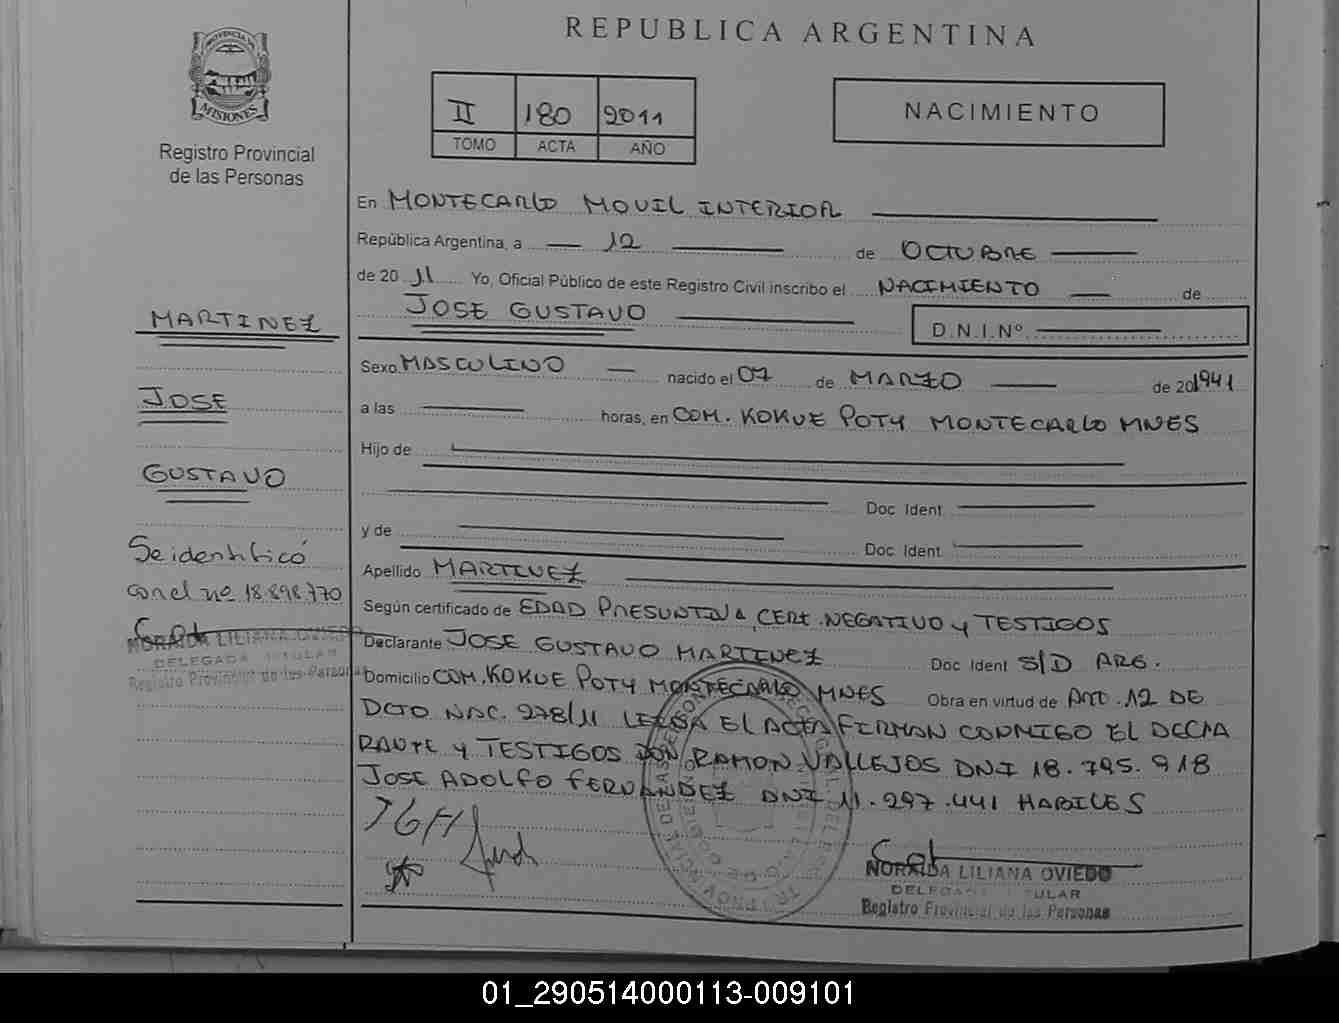 REPUBLICA ARGENTINA
PROVINCIA DE
MISIONES
Registro Provincial
de las Personas
II 180 2011
TOMO ACTA AÑO
NACIMIENTO
En MONTECARLO MOVIL INTERIOR
República Argentina, a 12 de OCTUBRE
de 20 11 Yo, Oficial Público de este Registro Civil inscribo el NACIMIENTO de
JOSE GUSTAVO
D.N.I.Nº
Sexo MASCULINO nacido el 07 de MARZO de 201941
a las horas, en COM. KOKUE POTY MONTECARLO MNES
Hijo de
Doc Ident
y de
Doc Ident
Apellido MARTINEZ
Según certificado de EDAD PRESUNTIVA, CERT. NEGATIVO y TESTIGOS
Declarante JOSE GUSTAVO MARTINEZ Doc Ident S/D ARG.
Domicilio COM. KOKUE POTY MONTECARLO MNES Obra en virtud de ARTO. 12 DE
DCTO NAC. 278/11 LEIDA EL ACTA FIRMAN CONMIGO EL DECLA
RANTE y TESTIGOS DON RAMON VALLEJOS DNI 18.795.918
JOSE ADOLFO FERNANDEZ DNI 11.297.441 HABILES
JGM
NORAIDA LILIANA OVIEDO
DELEGADA TITULAR
Registro Provincial de las Personas
MARTINEZ
JOSE
GUSTAVO
Se identificó
con el nº 18.898.770
NORAIDA LILIANA OVIEDO
DELEGADA TITULAR
Registro Provincial de las Personas
01_290514000113-009101